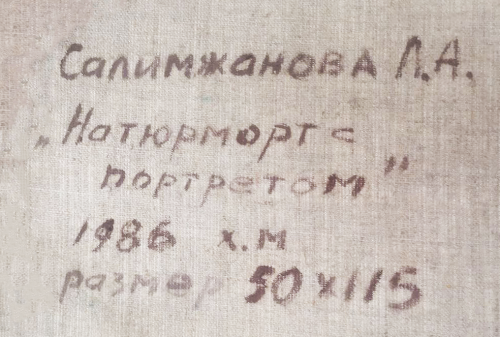 Салимжанова Л.А.
„Натюрморт с
портретом"
1986 х.м
размер 50х115